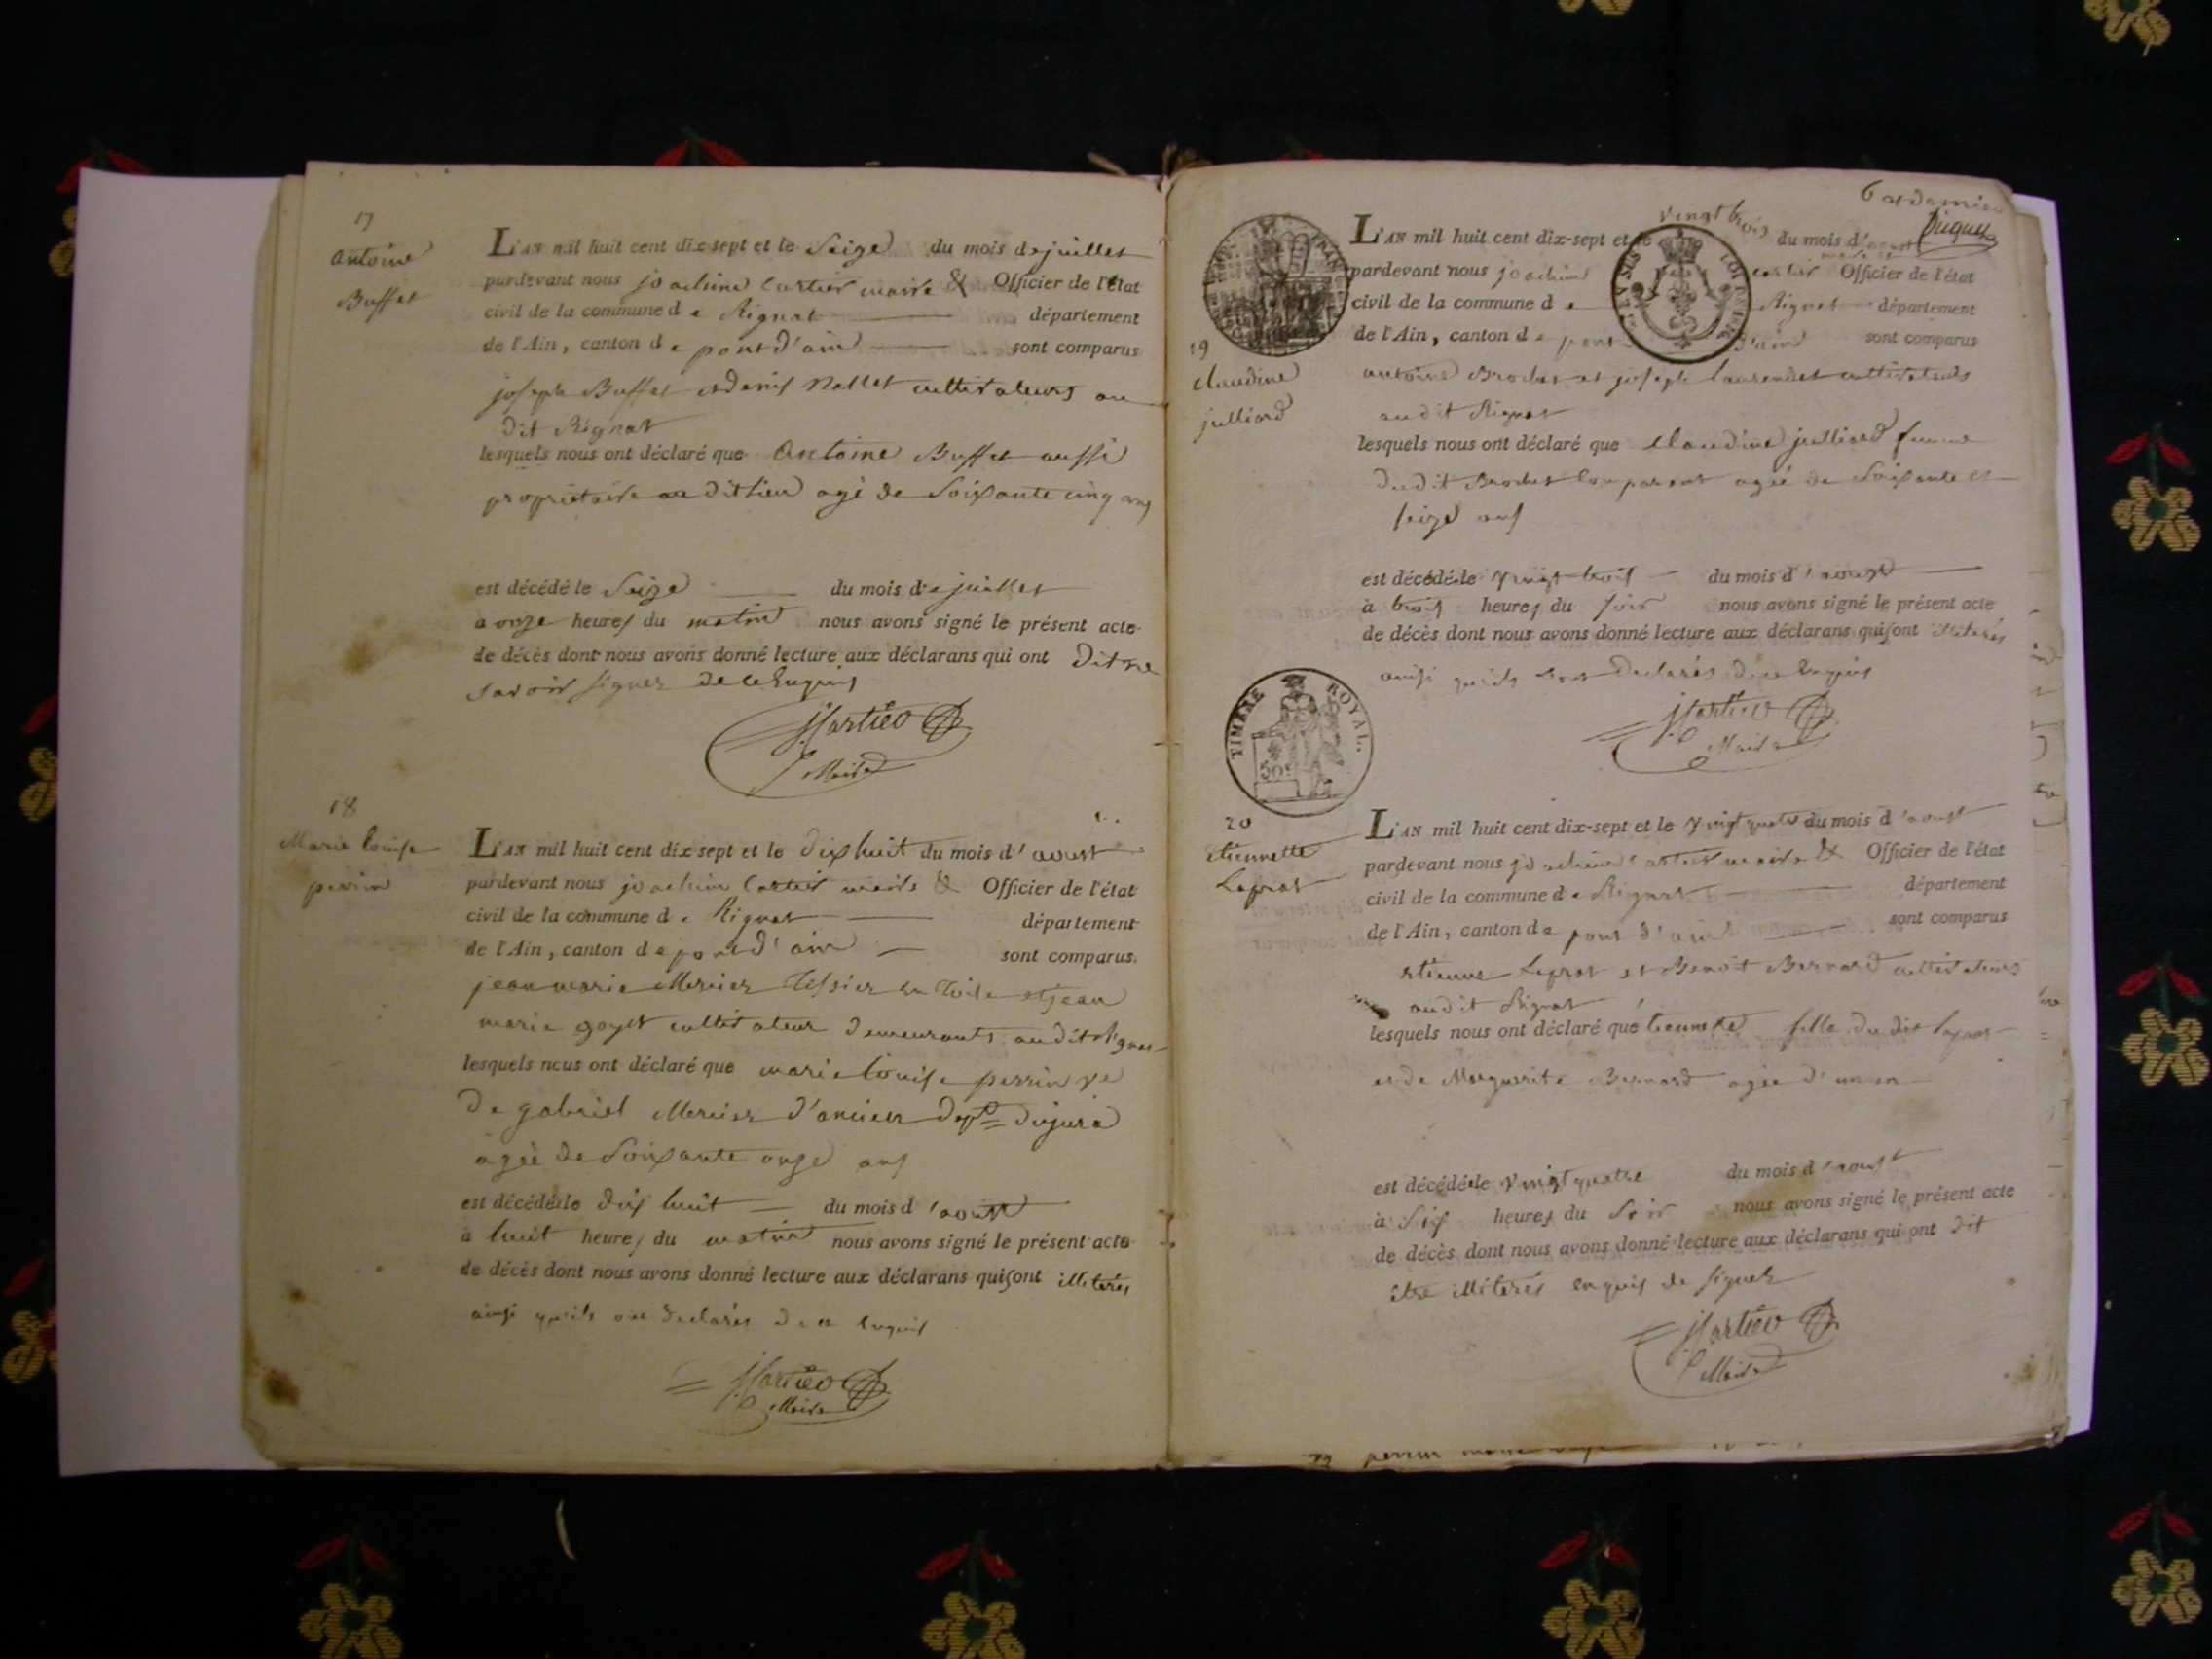 17
antoine
Buffet
L'AN mil huit cent dix-sept et le Seize du mois de juillet
pardevant nous joachim Cartier maire & Officier de l'état
civil de la commune de Rignat département
de l'Ain, canton de pont d'ain sont comparus
joseph Buffet et denis Mallet cultivateurs au
dit Rignat
lesquels nous ont déclaré que Antoine Buffet aussi
propriétaire au dit lieu agé de Soixante cinq ans
est décédé le Seize du mois de juillet
à onze heures du matin nous avons signé le présent acte
de décès dont nous avons donné lecture aux déclarans qui ont Dit ne
savoir signer de ce Enquis
JCartier
Maire
18
Marie louise
perrin
L'AN mil huit cent dix-sept et le dix huit du mois d'aoust
pardevant nous joachim Cartier maire & Officier de l'état
civil de la commune de Rignat département
de l'Ain, canton de pont d'ain sont comparus
jean marie Mercier Tissier en Toile et jean
marie goyet cultivateur demeurants au dit Rignat
lesquels nous ont déclaré que marie louise perrin ve
De gabriel Mercier d'ancier Dept du jura
agée de Soixante onze ans
est décédée le dix huit du mois d'aoust
à huit heures du matin nous avons signé le présent acte
de décès dont nous avons donné lecture aux déclarans qui sont illiterés
ainsi qu'ils ont declarés de ce Enquis
JCartier
Maire
6 et dernier
19
claudine
julliard
L'AN mil huit cent dix-sept et le vingt trois du mois d'aoust
pardevant nous joachim cartier Officier de l'état
civil de la commune de Rignat département
de l'Ain, canton de pont d'ain sont comparus
antoine Brochet et joseph laurendet cultivateurs
au dit Rignat
lesquels nous ont déclaré que claudine julliard femme
du dit Brochet Comparant agée de Soixante et
seize ans
est décédée le vingt trois du mois d'aoust
à trois heures du soir nous avons signé le présent acte
de décès dont nous avons donné lecture aux déclarans qui sont illiterés
ainsi qu'ils ont declarés de ce Enquis
JCartier
Maire
TIMBRE ROYAL.
50c
20
étiennette
Leprat
L'AN mil huit cent dix-sept et le vingt quatre du mois d'aoust
pardevant nous joachim cartier maire & Officier de l'état
civil de la commune de Rignat département
de l'Ain, canton de pont d'ain sont comparus
étienne Leprat et Benoit Bernard cultivateurs
au dit Rignat
lesquels nous ont déclaré que étiennette fille du dit leprat
et de Marguerite Bernard agée d'un an
est décédée le vingt quatre du mois d'aoust
à Six heures du Soir nous avons signé le présent acte
de décès dont nous avons donné lecture aux déclarans qui ont dit
être illiterés enquis de signer
JCartier
Maire